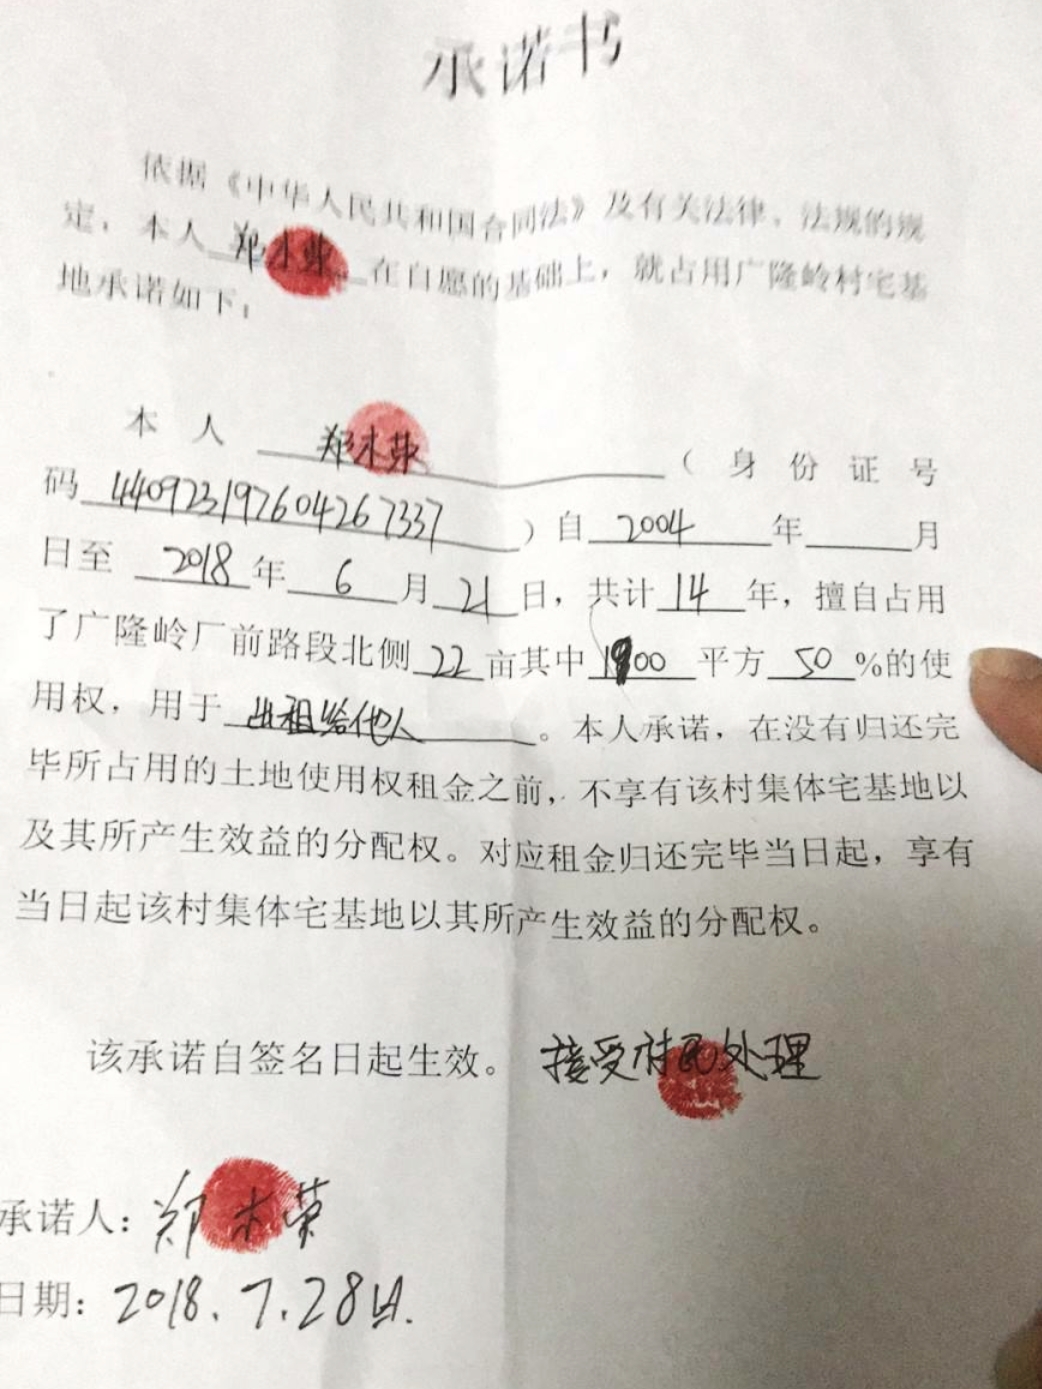 承诺书
依据《中华人民共和国合同法》及有关法律、法规的规
定，本人 郑木荣 在自愿的基础上，就占用广隆岭村宅基
地承诺如下：
本人 郑木荣 （身份证号
码 440923197604267337 ）自 2004 年 月
日至 2018 年 6 月 21 日，共计 14 年，擅自占用
了广隆岭厂前路段北侧 22 亩其中 1900 平方 50 %的使
用权，用于 出租给他人 。本人承诺，在没有归还完
毕所占用的土地使用权租金之前，不享有该村集体宅基地以
及其所产生效益的分配权。对应租金归还完毕当日起，享有
当日起该村集体宅基地以其所产生效益的分配权。
该承诺自签名日起生效。 接受村民处理
承诺人：郑木荣
日期：2018.7.28日.